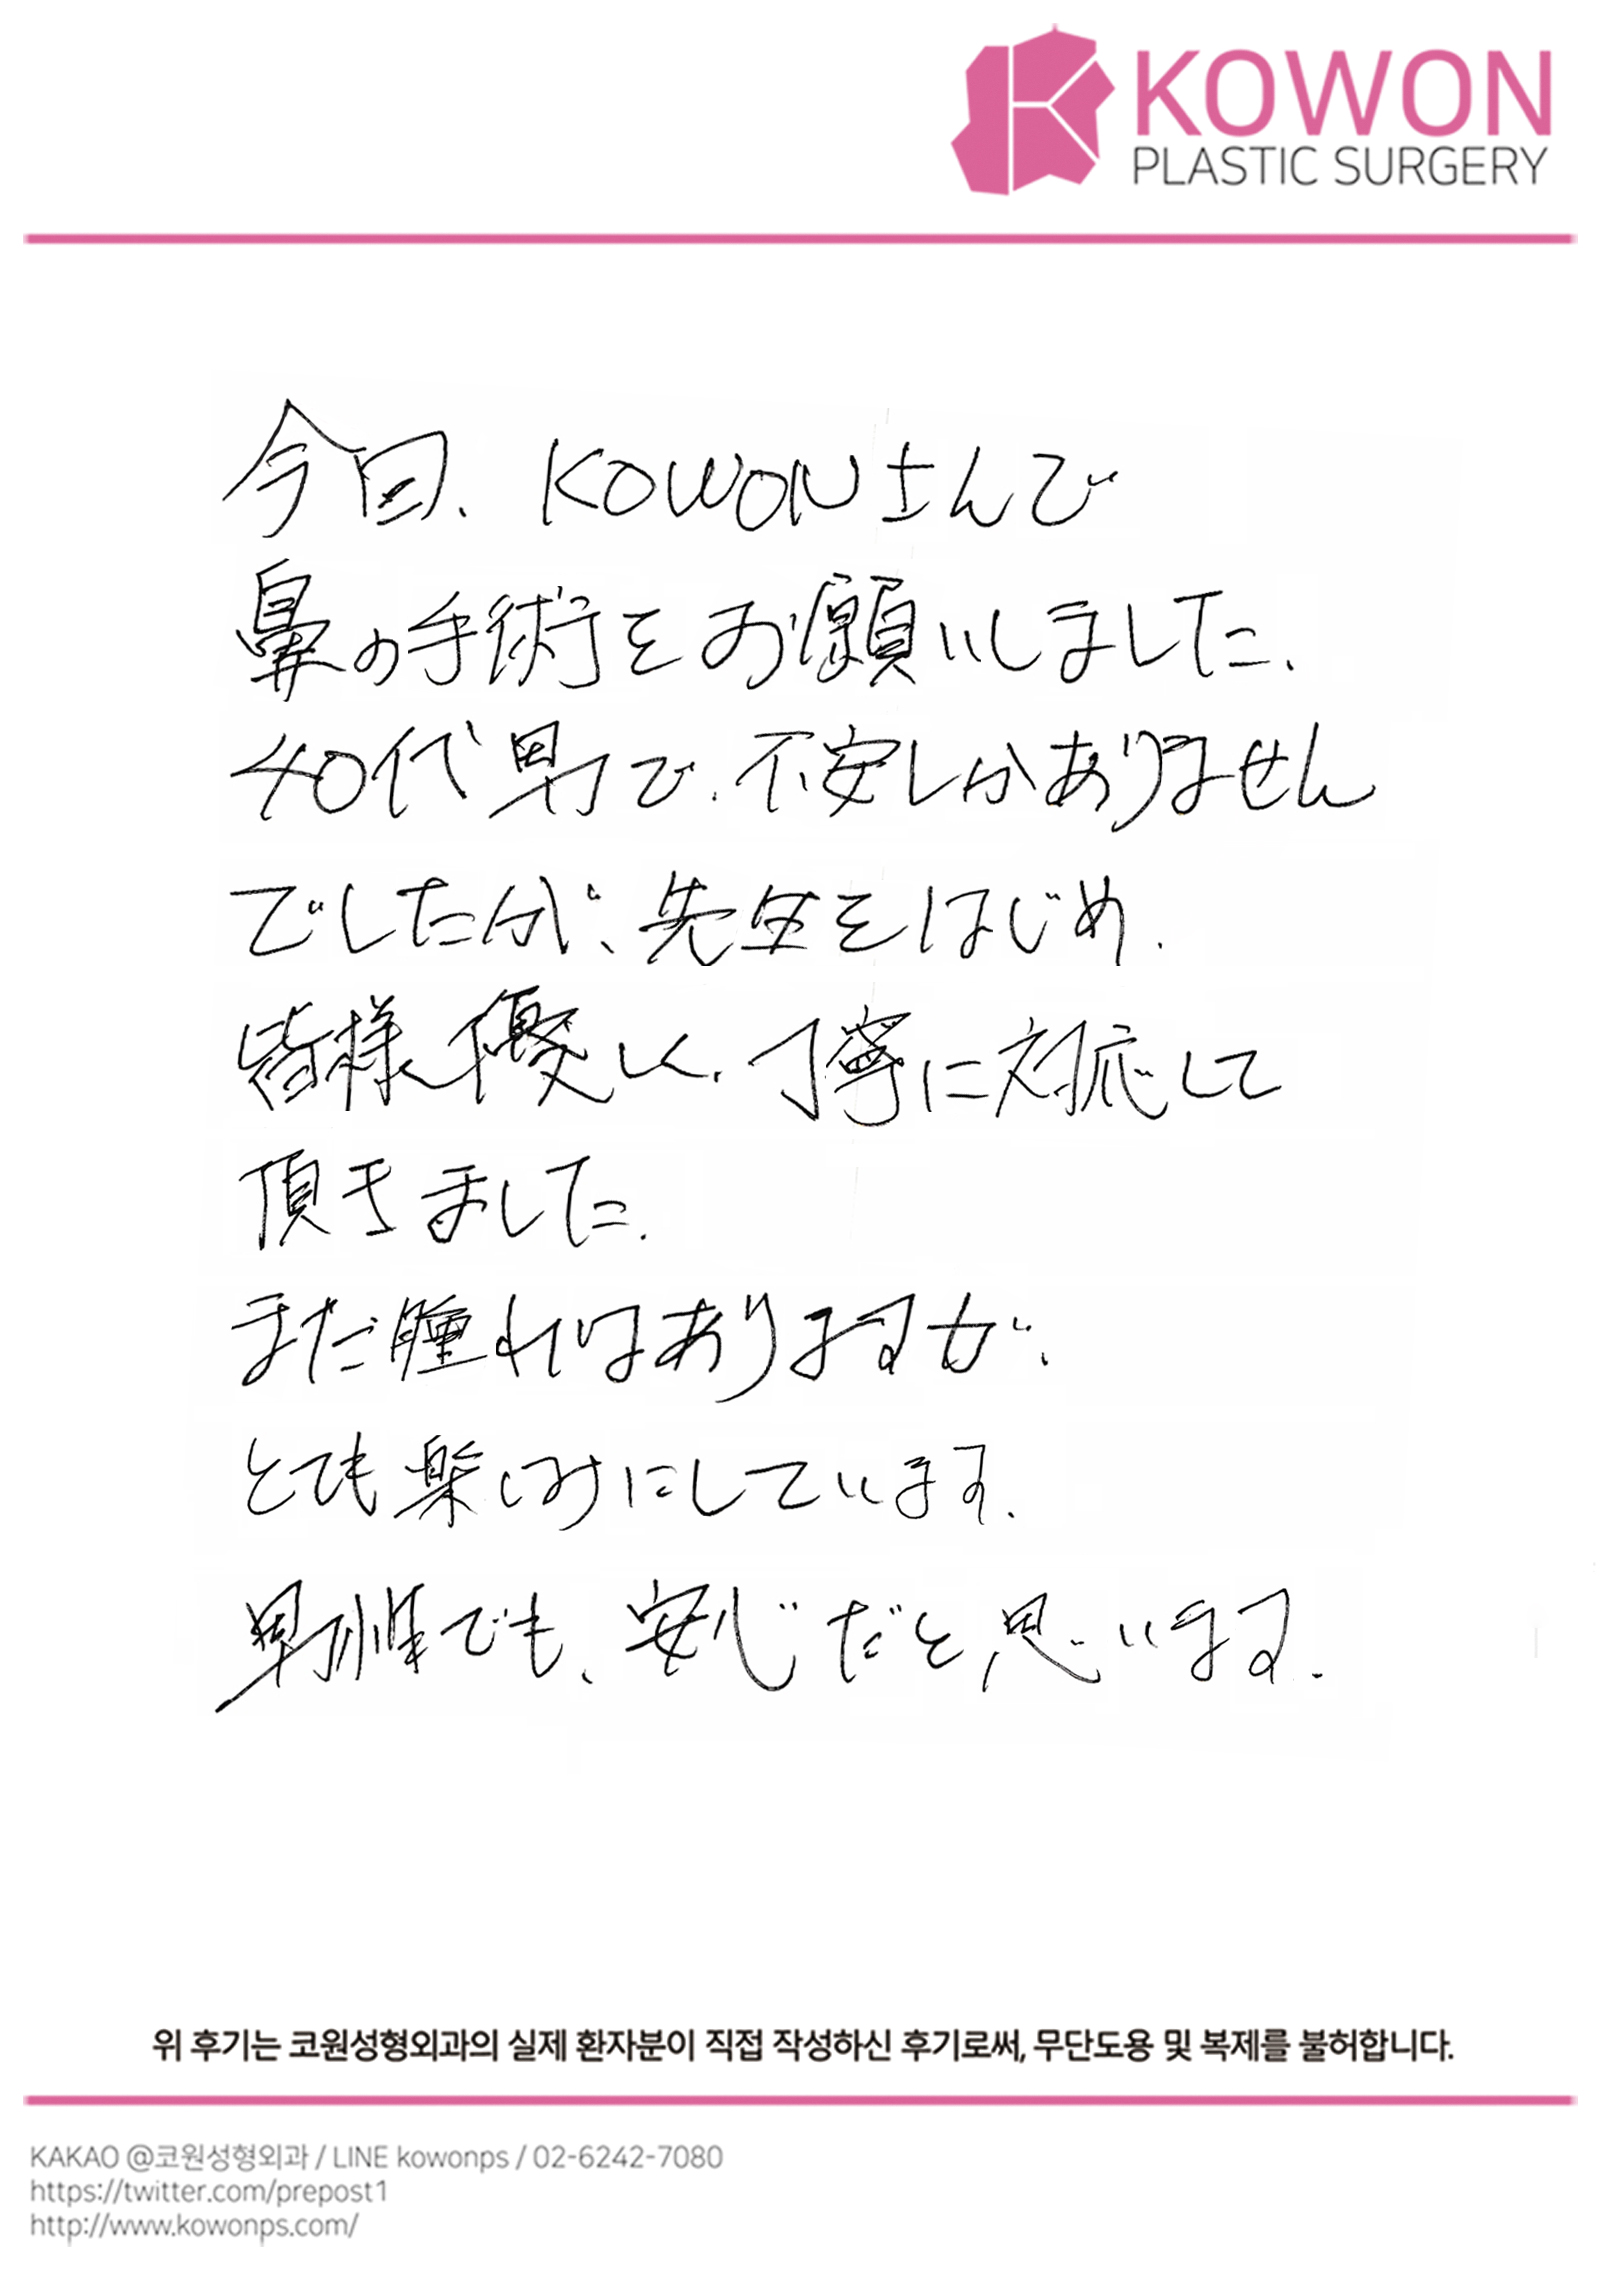 KOWON
PLASTIC SURGERY
今回、KOWONさんで
鼻の手術をお願いしました、
40代男で、不安しかありません
でしたが、先生をはじめ、
皆様優しく、丁寧に対応して
頂きました。
まだ腫れはありますが、
とても楽しみにしています。
男性でも、安心だと思います。
위 후기는 코원성형외과의 실제 환자분이 직접 작성하신 후기로써, 무단도용 및 복제를 불허합니다.
KAKAO @코원성형외과 / LINE kowonps / 02-6242-7080
https://twitter.com/prepost1
http://www.kowonps.com/